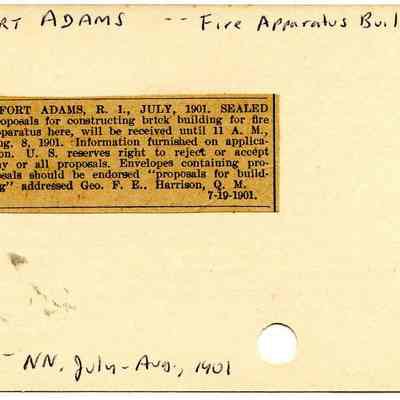 RT ADAMS -- Fire Apparatus Buil
FORT ADAMS, R. I., JULY, 1901. SEALED
oposals for constructing brick building for fire
paratus here, will be received until 11 A. M.,
ug. 8, 1901. Information furnished on applica-
on. U. S. reserves right to reject or accept
ny or all proposals. Envelopes containing pro-
sals should be endorsed "proposals for build-
g" addressed Geo. F. E.. Harrison, Q. M.
7-19-1901.
- NN. July-Aug., 1901